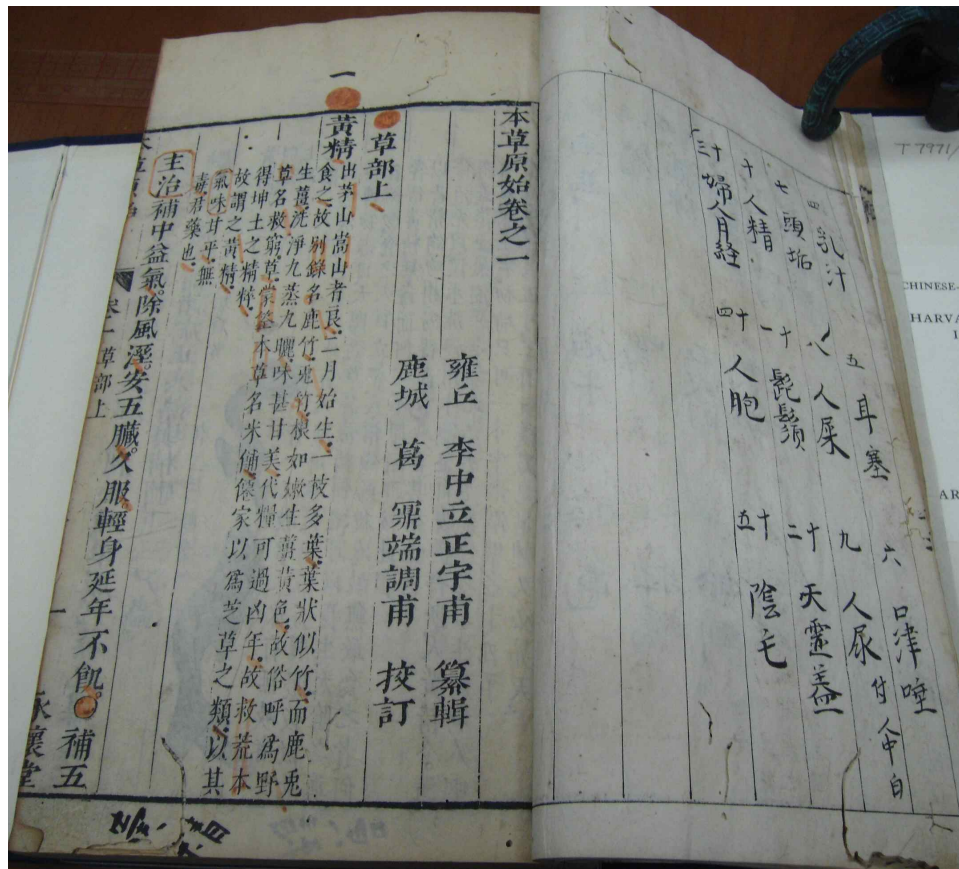 四 乳汁 五 耳塞 六 口津唾
七 頭垢 八 人屎 九 人尿 付人中白
十 人精 十一 髭鬚 十二 天靈蓋
十三 婦人月経 十四 人胞 十五 陰毛
本草原始卷之一
雍丘 李中立正宇甫 纂輯
鹿城 葛 鼏端調甫 挍訂
草部上
一
黃精 出茅山嵩山者良二月始生一枝多葉葉狀似竹而鹿兎
食之故别錄名鹿竹兎竹根如嫩生薑黃色故俗呼爲野
生薑洗淨九蒸九曬味甚甘美代糧可過凶年故救荒本
草名救窮草蒙筌本草名米餔僊家以爲芝草之類以其
得坤土之精粹
故謂之黃精
氣味甘平無
毒君藥也
主治補中益氣除風溼安五臟久服輕身延年不飢 補五
卷一 草部上 一 永懷堂
T 7971/
CHINESE-
HARVA
AR